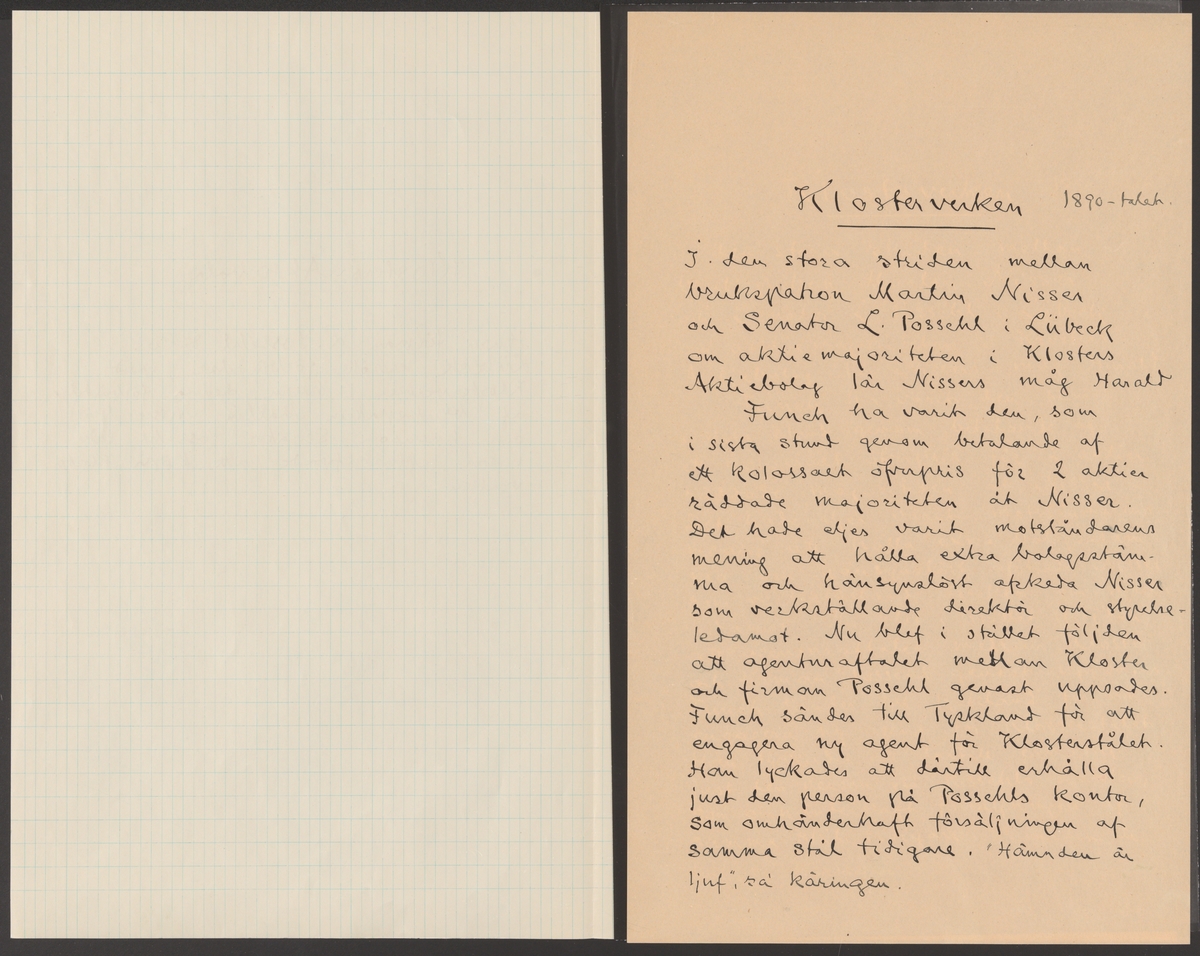 Klosterverken 1890-talet.
I den stora striden mellan
brukspatron Martin Nisser
och Senator L. Possehl i Lübeck
om aktiemajoriteten i Klosters
Aktiebolag lär Nissers måg Harald
Funch ha varit den, som
i sista stund genom betalande af
ett kolossalt öfverpris för 2 aktier
räddade majoriteten åt Nisser.
Det hade eljes varit motståndarens
mening att hålla extra bolagsstäm-
ma och hänsynslöst afskeda Nisser
som verkställande direktör och styrelse-
ledamot. Nu blef i stället följden
att agenturaftalet mellan Kloster
och firman Possehl genast uppsades.
Funch sändes till Tyskland för att
engagera ny agent för Klosterstålet.
Han lyckades att därtill erhålla
just den person på Possehls kontor,
som omhänderhaft försäljningen af
samma stål tidigare. "Hämnden är
ljuf", sa käringen.